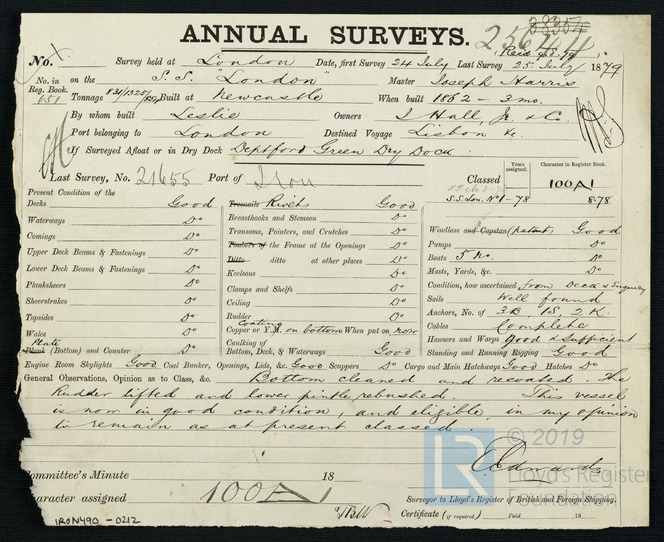 ANNUAL SURVEYS.
38354
No. Survey held at London Date, first Survey 24 July Last Survey 25 July 1879
No. in Reg. Book. 651 on the S.S. "London" Master Joseph Harris
Tonnage Built at Newcastle When built 1862 - 3 mo.
By whom built Leslie Owners J Hall, Jr. & Co.
Port belonging to London Destined Voyage Lisbon &c.
If Surveyed Afloat or in Dry Dock Deptford Green Dry Dock
Last Survey, No. 21655 Port of Iron
Classed S.S. Lon. No 1 - 78
Years assigned.
Character in Register Book.
100A1
8.78
Present Condition of the
Decks Good
Waterways Do
Comings Do
Upper Deck Beams & Fastenings Do
Lower Deck Beams & Fastenings Do
Planksheers Do
Sheerstrakes Do
Topsides Do
Wales Do
Plate
Plank (Bottom) and Counter Do
Treenails Rivets Good
Breasthooks and Stemson Do
Transoms, Pointers, and Crutches Do
Timbers of the Frame at the Openings Do
Ditto ditto at other places Do
Keelsons Do
Clamps and Shelfs Do
Ceiling Do
Rudder Do
Coating
Copper or Y.M. on bottom When put on now
Caulking of Bottom, Deck, & Waterways Good
Windlass and Capstan (patent) Good
Pumps Do
Boats 5 No. Do
Masts, Yards, &c. Do
Condition, how ascertained from Deck & Enquiry
Sails Well found
Anchors, No. of 3B, 1S, 2K.
Cables Complete
Hawsers and Warps Good & Sufficient
Standing and Running Rigging Good
Engine Room Skylights Good Coal Bunker, Openings, Lids, &c. Good Scuppers Do Cargo and Main Hatchways Good Hatches Do
General Observations, Opinion as to Class, &c. Bottom cleaned and recoated. The
Rudder lifted and lower pintle rebushed. This vessel
is now in good condition, and eligible, in my opinion
to remain as at present classed.
Committee's Minute 18
Character assigned 100A1
Surveyor to Lloyd's Register of British and Foreign Shipping.
Certificate (if required) Paid 18
IRON490-0212
© 2019
Lloyd's Register
Foundation
LR